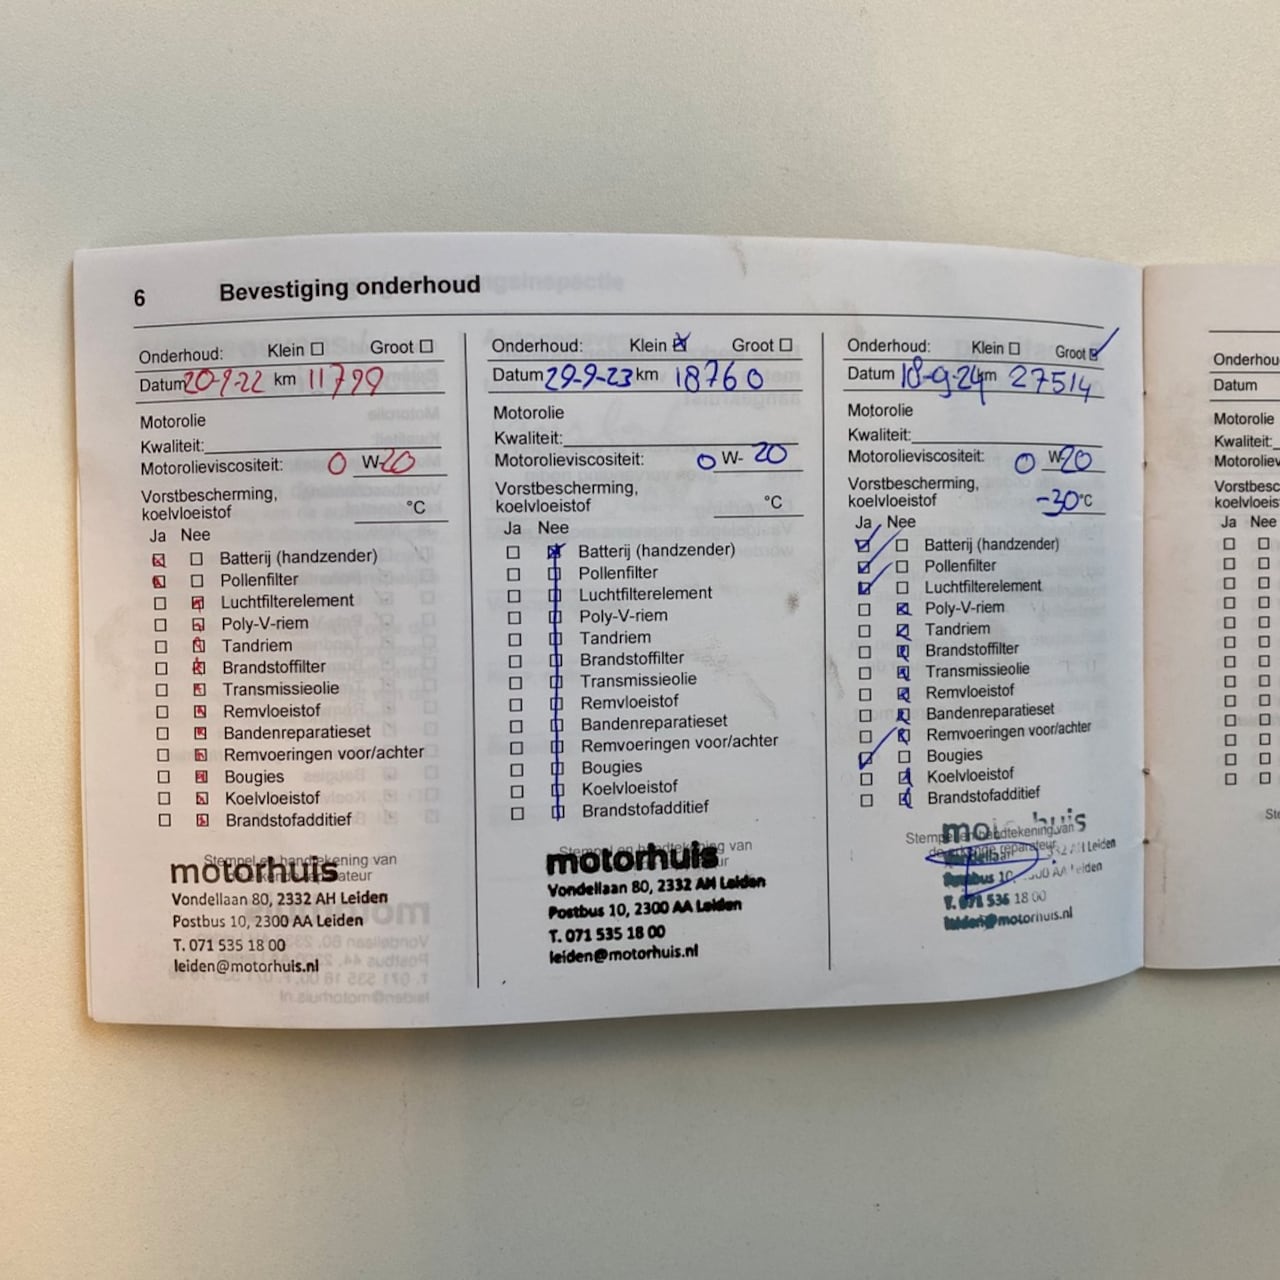 6 Bevestiging onderhoud
Onderhoud: Klein Groot
Datum 20-9-22 km 11799
Motorolie
Kwaliteit:
Motorolieviscositeit: 0 W-20
Vorstbescherming,
koelvloeistof °C
Ja Nee
Batterij (handzender)
Pollenfilter
Luchtfilterelement
Poly-V-riem
Tandriem
Brandstoffilter
Transmissieolie
Remvloeistof
Bandenreparatieset
Remvoeringen voor/achter
Bougies
Koelvloeistof
Brandstofadditief
Stempel en handtekening van
motorhuis
Vondellaan 80, 2332 AH Leiden
Postbus 10, 2300 AA Leiden
T. 071 535 18 00
leiden@motorhuis.nl
Onderhoud: Klein Groot
Datum 29-9-23 km 18760
Motorolie
Kwaliteit:
Motorolieviscositeit: 0 W- 20
Vorstbescherming,
koelvloeistof °C
Ja Nee
Batterij (handzender)
Pollenfilter
Luchtfilterelement
Poly-V-riem
Tandriem
Brandstoffilter
Transmissieolie
Remvloeistof
Bandenreparatieset
Remvoeringen voor/achter
Bougies
Koelvloeistof
Brandstofadditief
Stempel en handtekening van
motorhuis
Vondellaan 80, 2332 AH Leiden
Postbus 10, 2300 AA Leiden
T. 071 535 18 00
leiden@motorhuis.nl
Onderhoud: Klein Groot
Datum 18-9-24 km 27514
Motorolie
Kwaliteit:
Motorolieviscositeit: 0 W-20
Vorstbescherming,
koelvloeistof -30°C
Ja Nee
Batterij (handzender)
Pollenfilter
Luchtfilterelement
Poly-V-riem
Tandriem
Brandstoffilter
Transmissieolie
Remvloeistof
Bandenreparatieset
Remvoeringen voor/achter
Bougies
Koelvloeistof
Brandstofadditief
Stempel en handtekening van
de erkende reparateur
motorhuis
Vondellaan Leiden
Postbus 10, AA Leiden
T. 071 535 18 00
leiden@motorhuis.nl
Datum
Motorolie
Kwaliteit:
Ja Nee